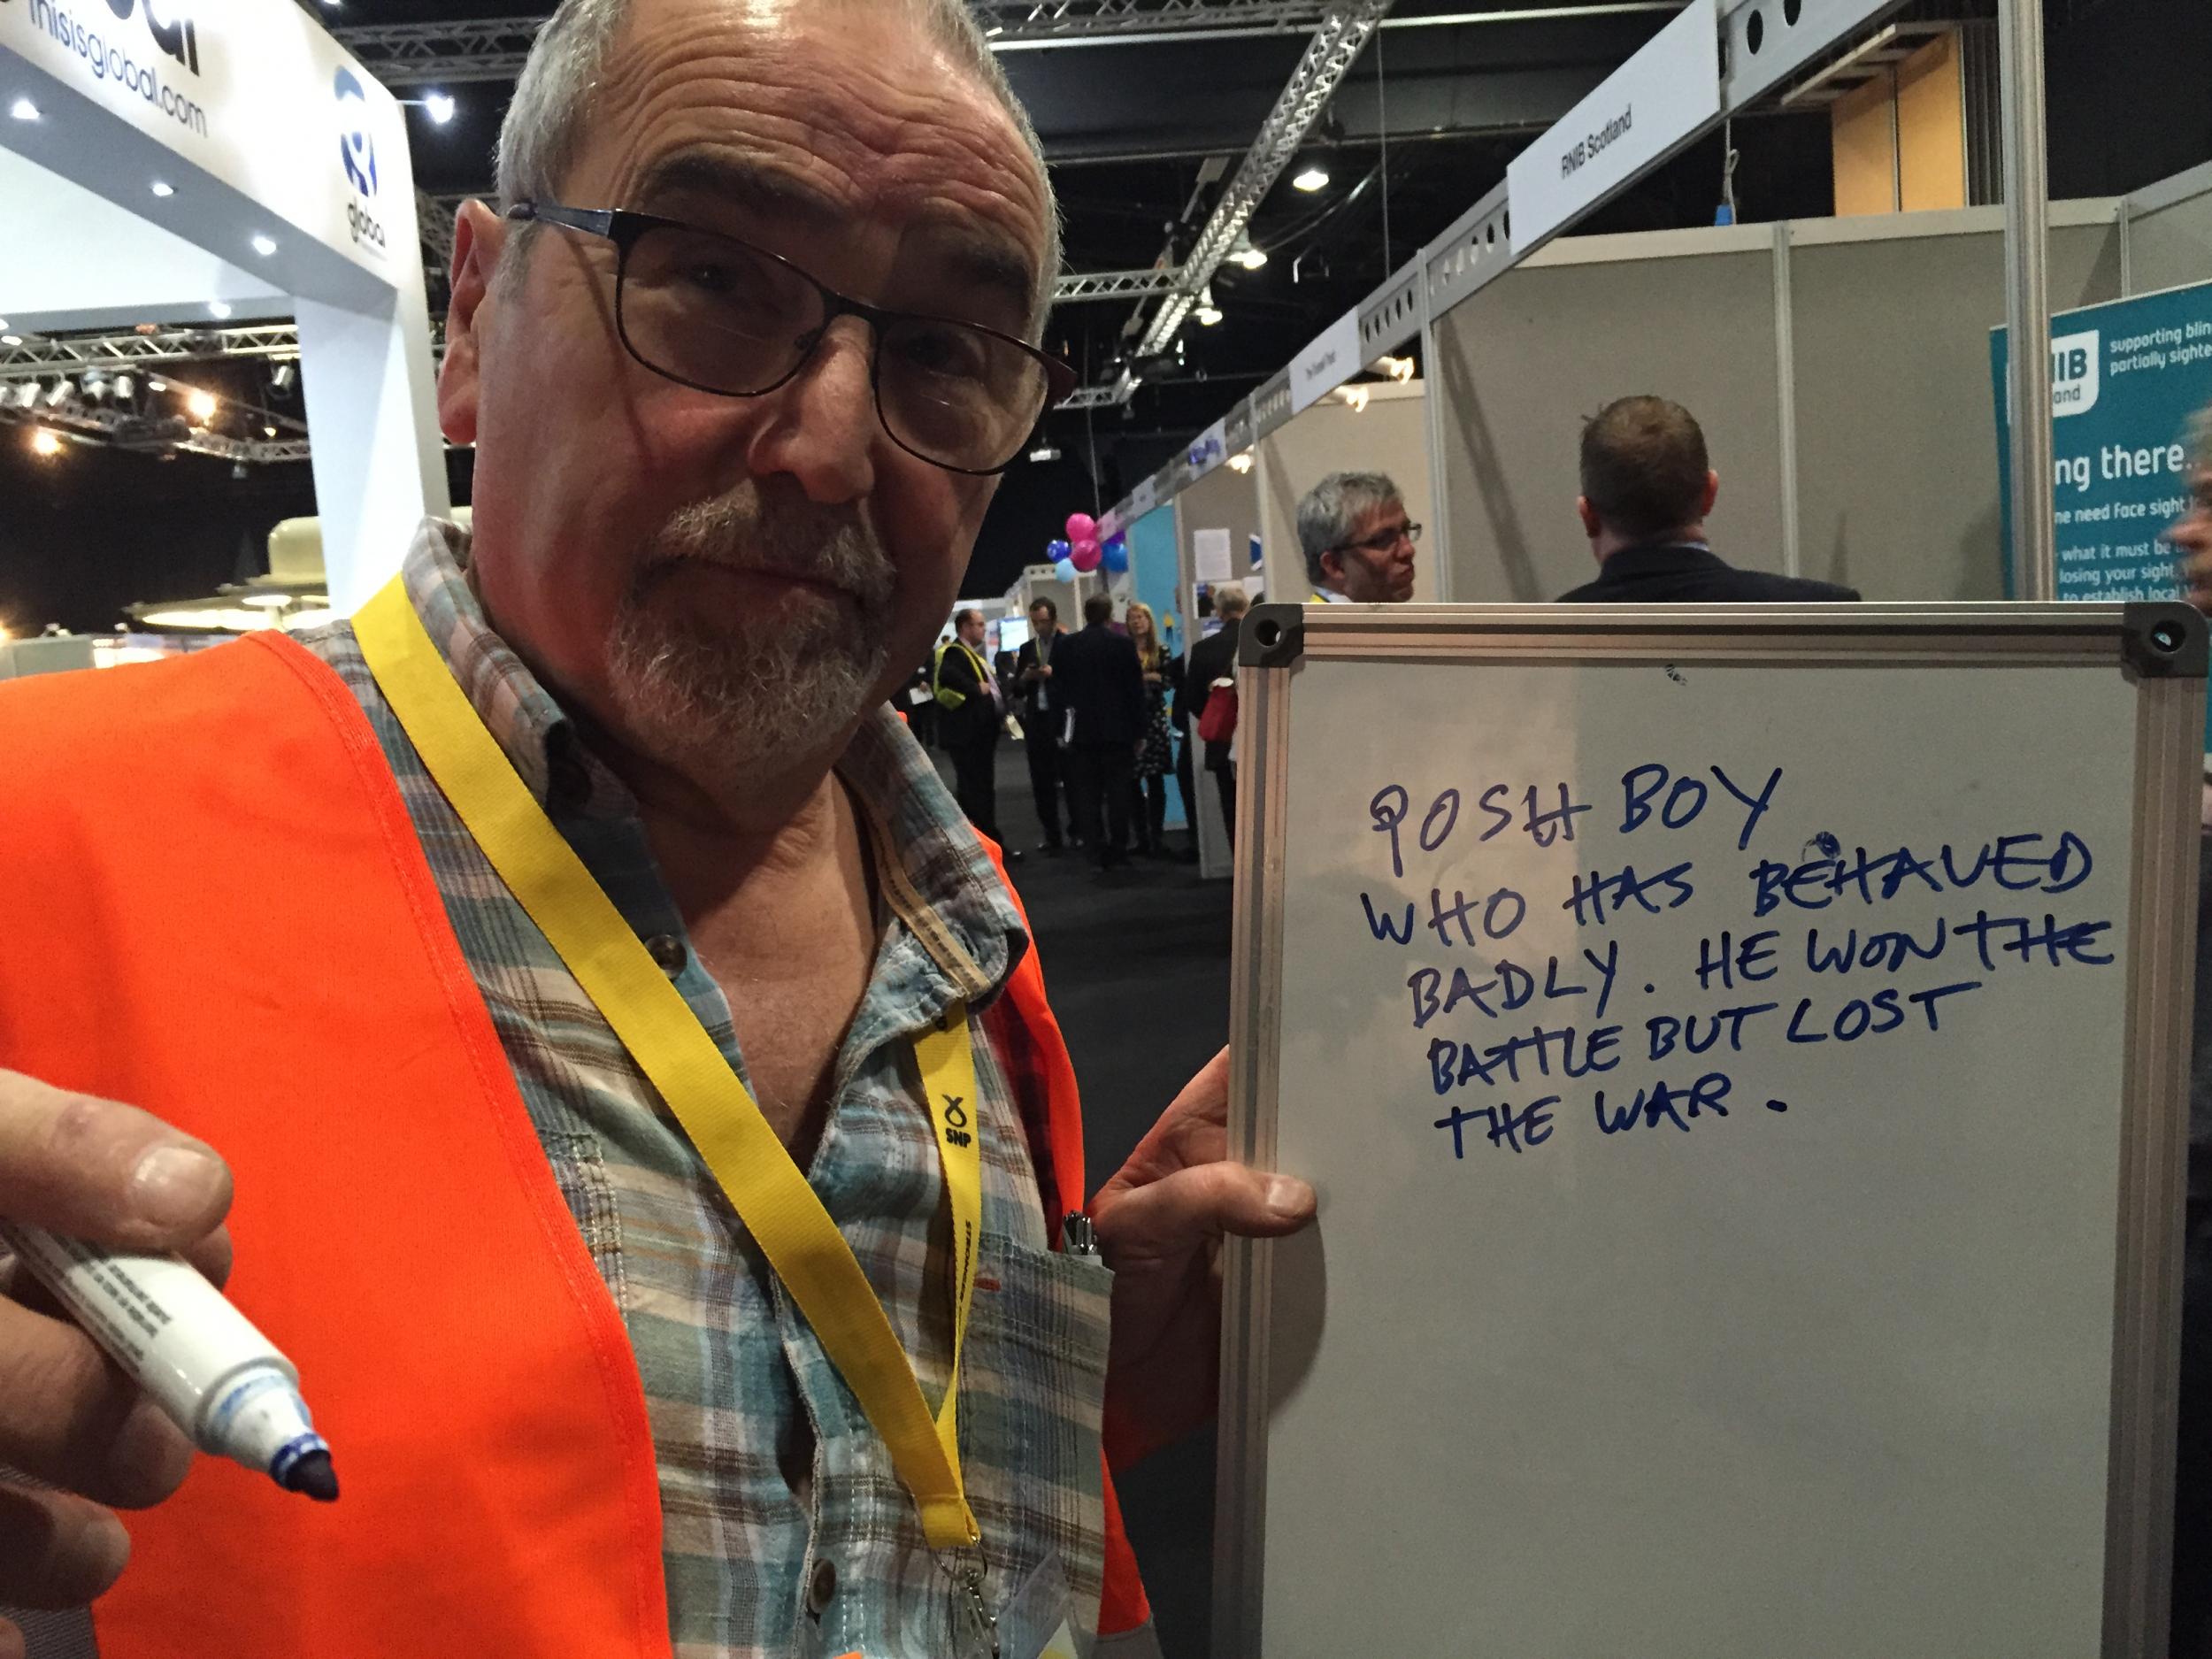 thisisglobal.com
global
RNIB Scotland
supporting blin
partially sighte
IB
and
ng there.
ne need face sight
what it must be
losing your sight
to establish local
SNP
POSH BOY
WHO HAS BEHAVED
BADLY. HE WON THE
BATTLE BUT LOST
THE WAR.